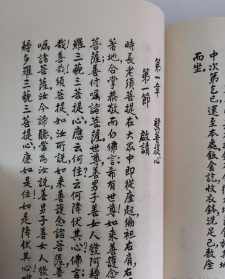 中次第乞已還至本處飯食訖收衣鉢洗足已敷座
而坐
第一章 發菩提心
第一節 啟請
時長老須菩提在大眾中即從座起偏袒右肩右
著地合掌恭敬而白佛言希有世尊如來善護念
菩薩善付囑諸菩薩世尊善男子善女人發阿耨
羅三藐三菩提心應云何住云何降伏其心佛言
哉善哉須菩提如汝所說如來善護念諸菩薩善
囑諸菩薩汝今諦聽當為汝說善男子善女人發
耨多羅三藐三菩提心應如是住如是降伏其